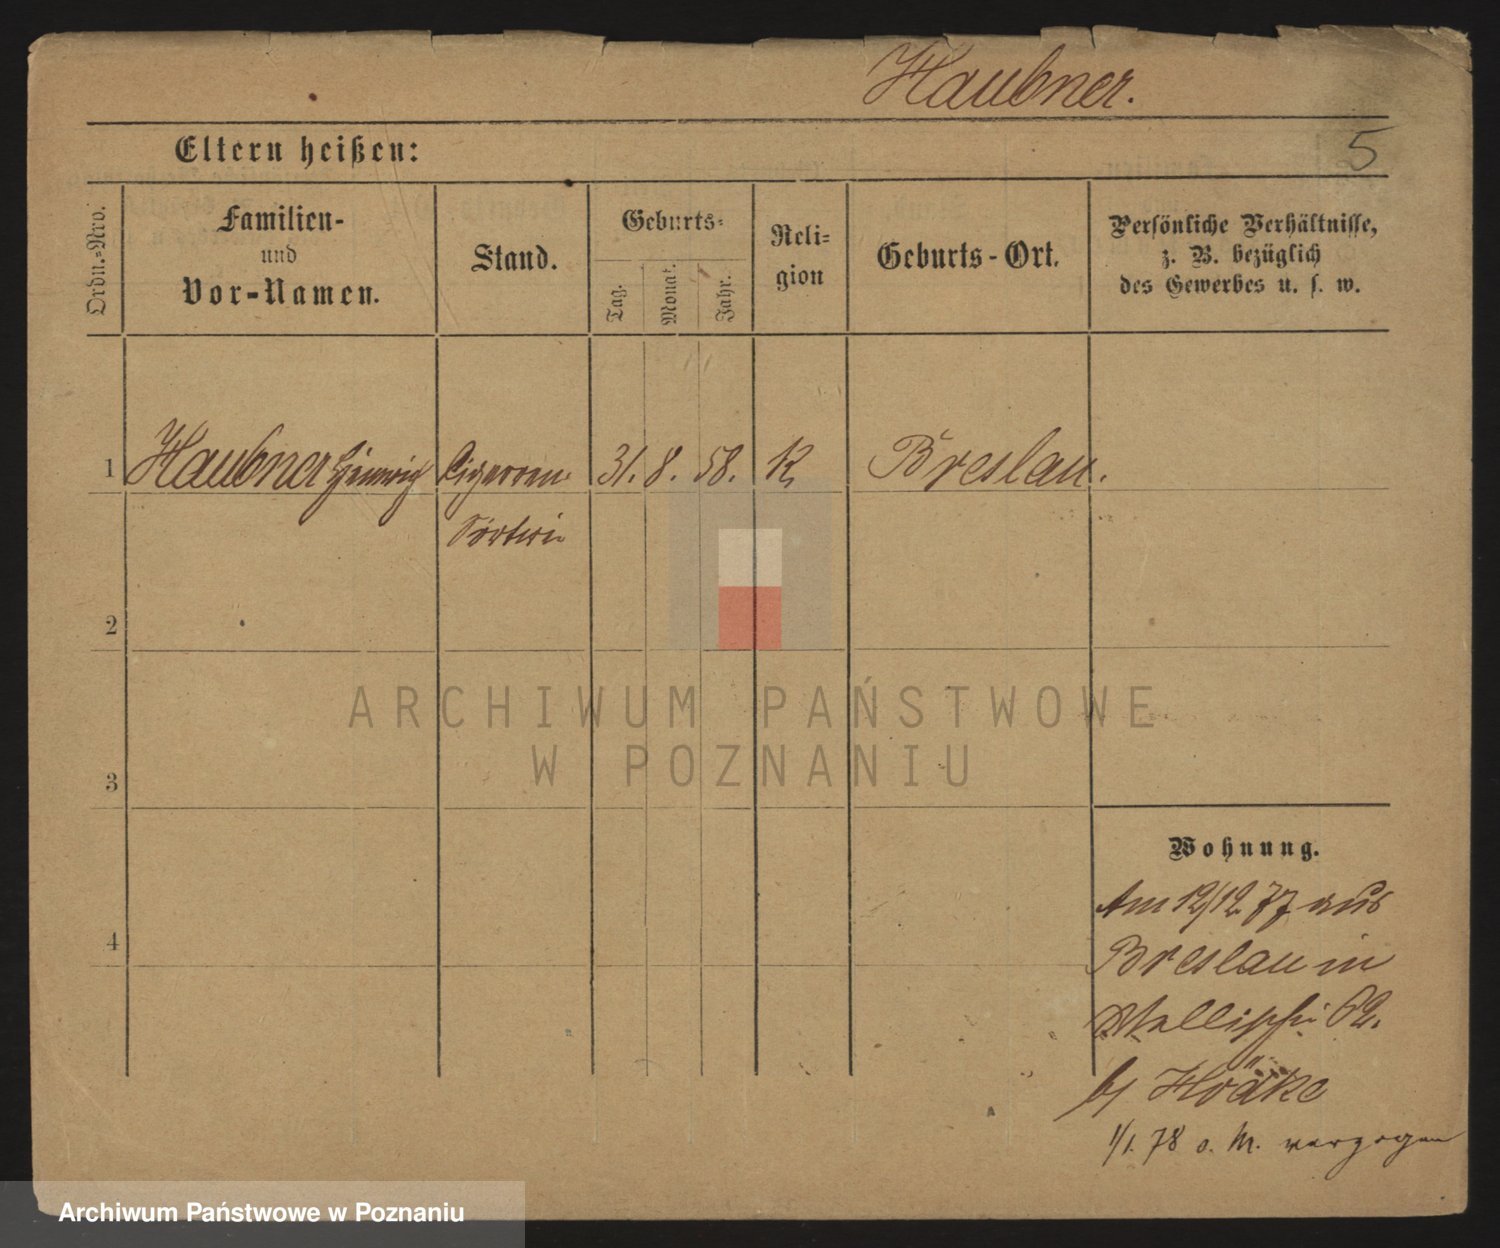 Haubner.
5
Eltern heißen:
Ordn.-Nro.
Familien-
und
Vor-Namen.
Stand.
Geburts-
Tag.
Monat.
Jahr.
Reli-
gion
Geburts-Ort.
Persönliche Verhältnisse,
z. B. bezüglich
des Gewerbes u. s. w.
1 Haubner Heinrich Cigarren 31. 8. 58. K Breslau.
2
ARCHIWUM PAŃSTWOWE
W POZNANIU
3
Wohnung.
Am 12/12 77 aus
4
Breslau in
Wallischei 62.
b/
1/1. 78 o. M. verzogen
Archiwum Państwowe w Poznaniu